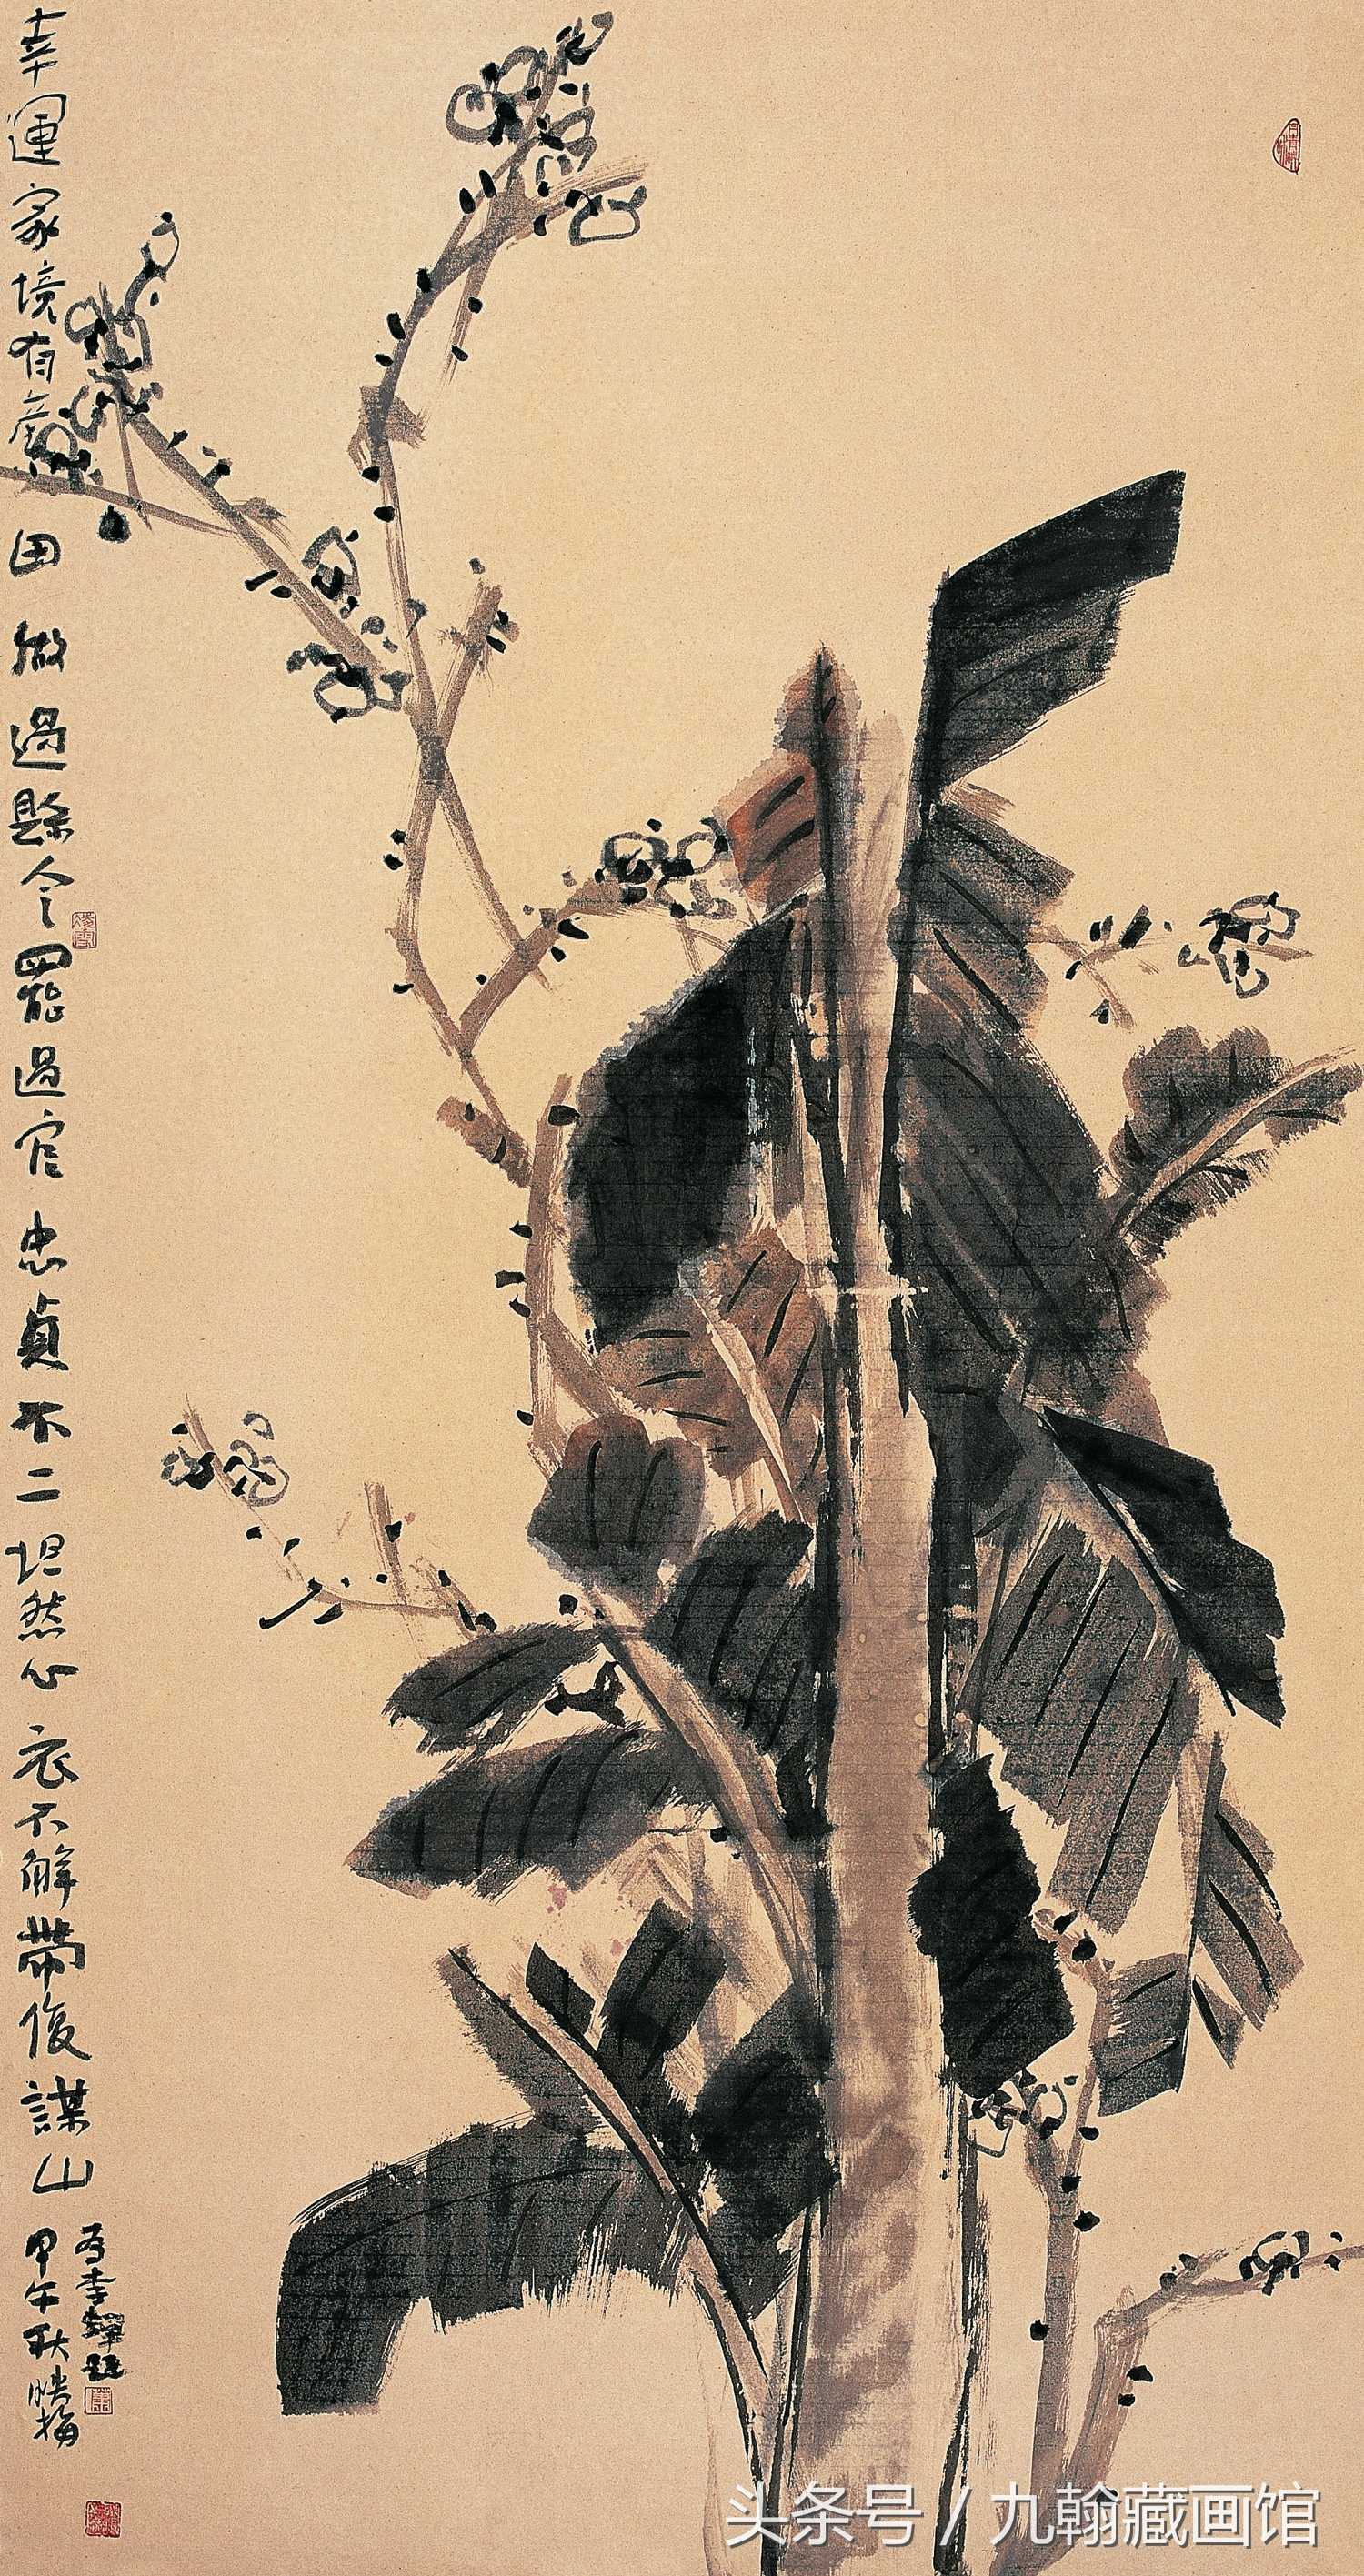 幸運家境有產田做過縣令罷過官忠貞不二坦然心衣不解帶復謀山
為李
題
甲午秋映梅
头条号 / 九翰藏画馆